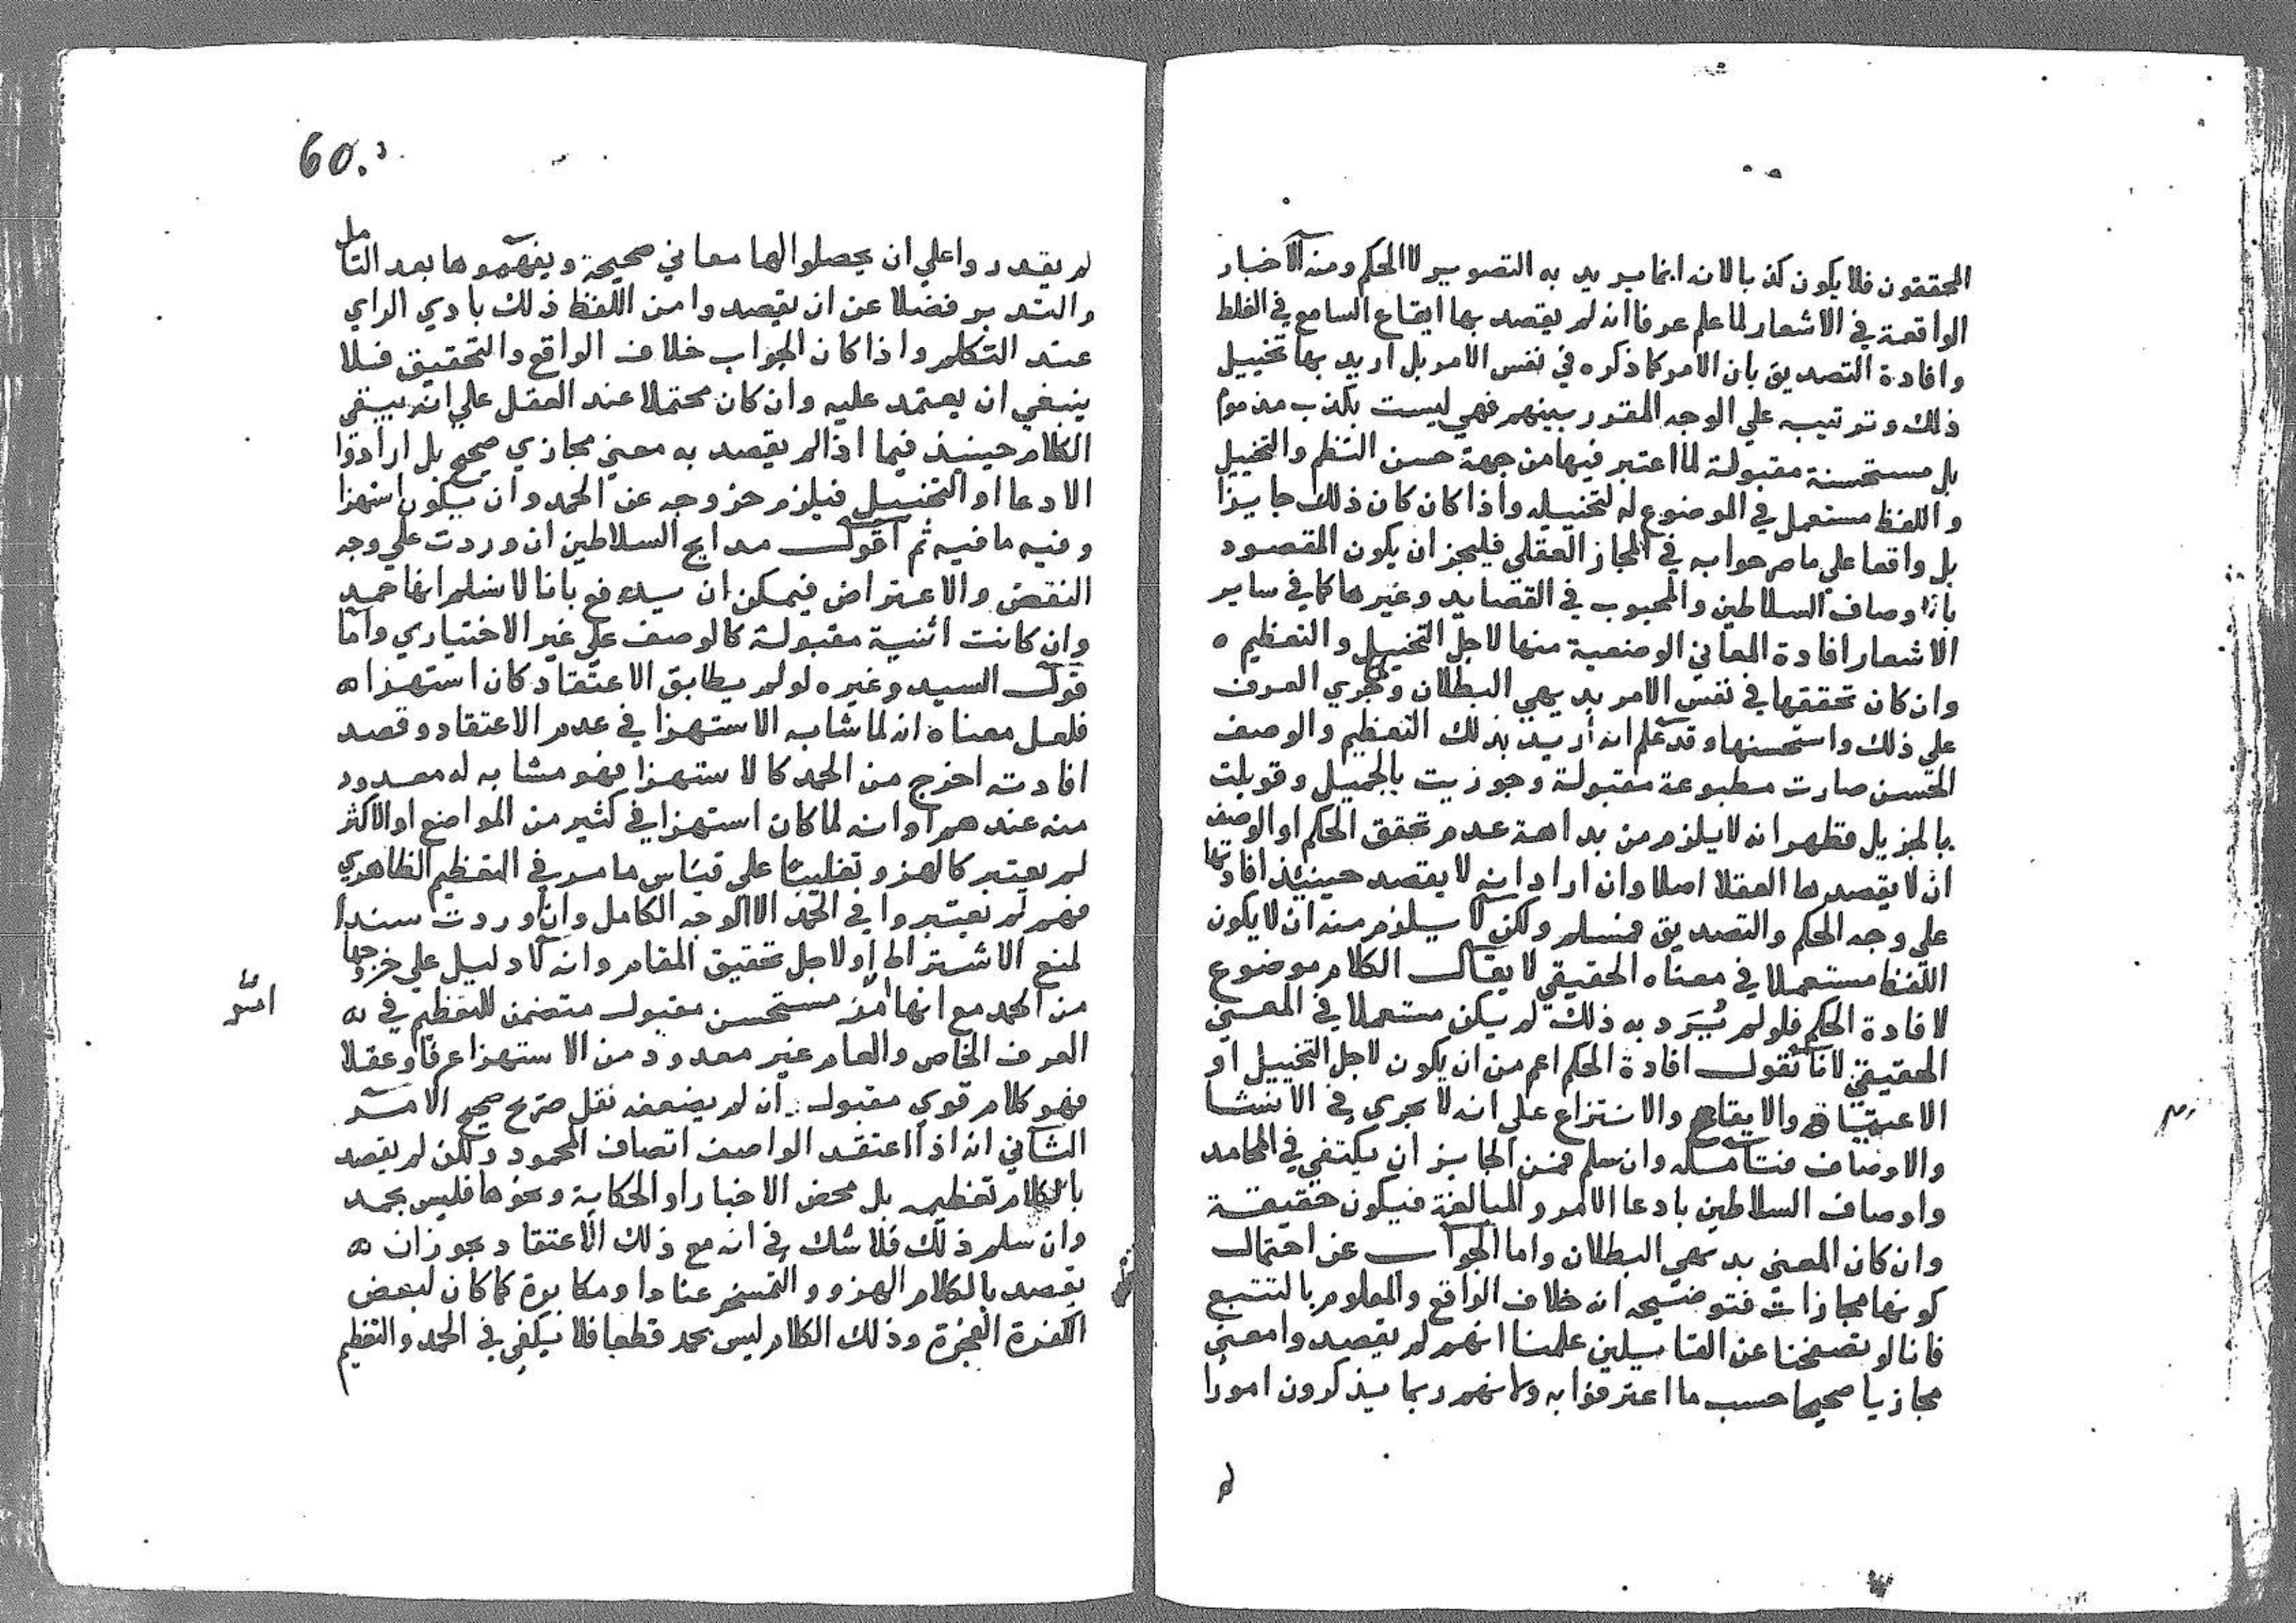 المحققون فلا يكون كذبا لانه انما يريد به التصوير لا الحكم ومنه الاخبار
الواقعة في الاشعار لما علم عرفا انه لم يقصد بها ايقاع السامع في الغلط
وافادة التصديق بان الامر كما ذكره في نفس الامر بل اريد بها تخييل
ذلك وترتيبه علي الوجه المقرر بينهم فهي ليست بكذب مذموم
بل مستحسنة مقبولة لما اعتبر فيها من جهة حسن النظم والتخييل
واللفظ مستعمل في الموضوع له لتخييله واذا كان كان ذلك جايزا
بل واقعا علي ما صرحوا به في المجاز العقلي فليجز ان يكون المقصود
باوصاف السلاطين والمحبوب في القصايد وغيرها كما في ساير
الاشعار افادة المعاني الوضعية منها لاجل التخييل والتعظيم ه
وان كان تحققها في نفس الامر بديهي البطلان ولجري العرف
علي ذلك واستحسنها وقد علم انه أريد بذلك التعظيم والوصف
الحسن صارت مطبوعة مقبولة وجوزيت بالجميل وقوبلت
بالجزيل فظهر انه لا يلزم من بداهة عدم تحقق الحكم او الوصف
ان لا يقصدها العقلا اصلا وان اراد انه لا يقصد حينئذ افادتها
علي وجه الحكم والتصديق فمسلم ولكن لا يلزم منه ان لا يكون
اللفظ مستعملا في معناه الحقيقي لا يقال الكلام موضوع
لافادة الحكم فلو لم يُرَد به ذلك لم يكن مستعملا في المعني
الحقيقي لانا نقول افادة الحكم اعم من ان يكون لاجل التخييل او
الاعتقاد والايقاع والانتزاع علي انه لا يجري في الانشا
والاوصاف فتامله وان سلم فمن الجايز ان يكتفي في المحامد
واوصاف السلاطين بادعا الامر والمبالغة فيكون حقيقة
وان كان المعني بديهي البطلان واما الجواب عن احتمال
كونها مجازات فتوضيحه انه خلاف الواقع والمعلوم بالتتبع
فانا لو تصفحنا عن القايلين علمنا انهم لم يقصدوا معني
مجازيا صحيحا حسب ما اعترفوا به ولانهم ربما يذكرون امورا
لم
60.
لم يقدروا علي ان يحصلوا لها معاني صحيحة ويفهموها بعد التامل
والتدبر فضلا عن ان يقصدوا من اللفظ ذلك بادي الراي
عند التكلم واذا كان الجواب خلاف الواقع والتحقيق فلا
ينبغي ان يعتمد عليه وان كان محتملا عند العقل علي انه يبقي
الكلام حينيذ فيما اذا لم يقصد به معني مجازي صحيح بل ارادوا
الادعا او التخييل فيلزم خروجه عن الحمد وان يكون استهزا
وفيه ما فيه ثم اقول مدايح السلاطين ان وردت علي وجه
النقض والاعتراض فيمكن ان يدفع بانا لا نسلم انها حمد
وان كانت اثنية مقبولة كالوصف علي غير الاختياري واما
قول السيد وغيره لو لم يطابق الاعتقاد كان استهزا ه
فلعل معناه انه لما شابه الاستهزا في عدم الاعتقاد وقصد
افادته اخرج من الحمد كالاستهزا فهو مشابه له معدود
منه عندهم او انه لما كان استهزا في كثير من المواضع او الاكثر
لم يعتبر كالهزو تغليبا علي قياس ما مر في التعظيم الظاهري
فهم لم يعتبروا في الحمد الا الوجه الكامل وان وردت سندا
لمنع الاشتراط او لاجل تحقيق المقام وانه لا دليل علي خروجها
من الحمد مع انها امر مستحسن مقبول متضمن للتعظيم في ه
العرف الخاص والعام غير معدود من الاستهزا عرفا وعقلا
فهو كلام قوي مقبول ان لم يضعفه نقل صريح صحيح الامر
الثاني انه اذا اعتقد الواصف اتصاف المحمود ولكن لم يقصد
بالكلام تعظيمه بل محض الاخبار او الحكاية ونحوها فليس بحمد
وان سلم ذلك فلا شك في انه مع ذلك الاعتقاد يجوز ان ه
يقصد بالكلام الهزو والتمسخر عنادا ومكابرة كما كان لبعض
الكفرة الفجرة وذلك الكلام ليس بحمد قطعا فلا يكفي في الحمد والتعظيم